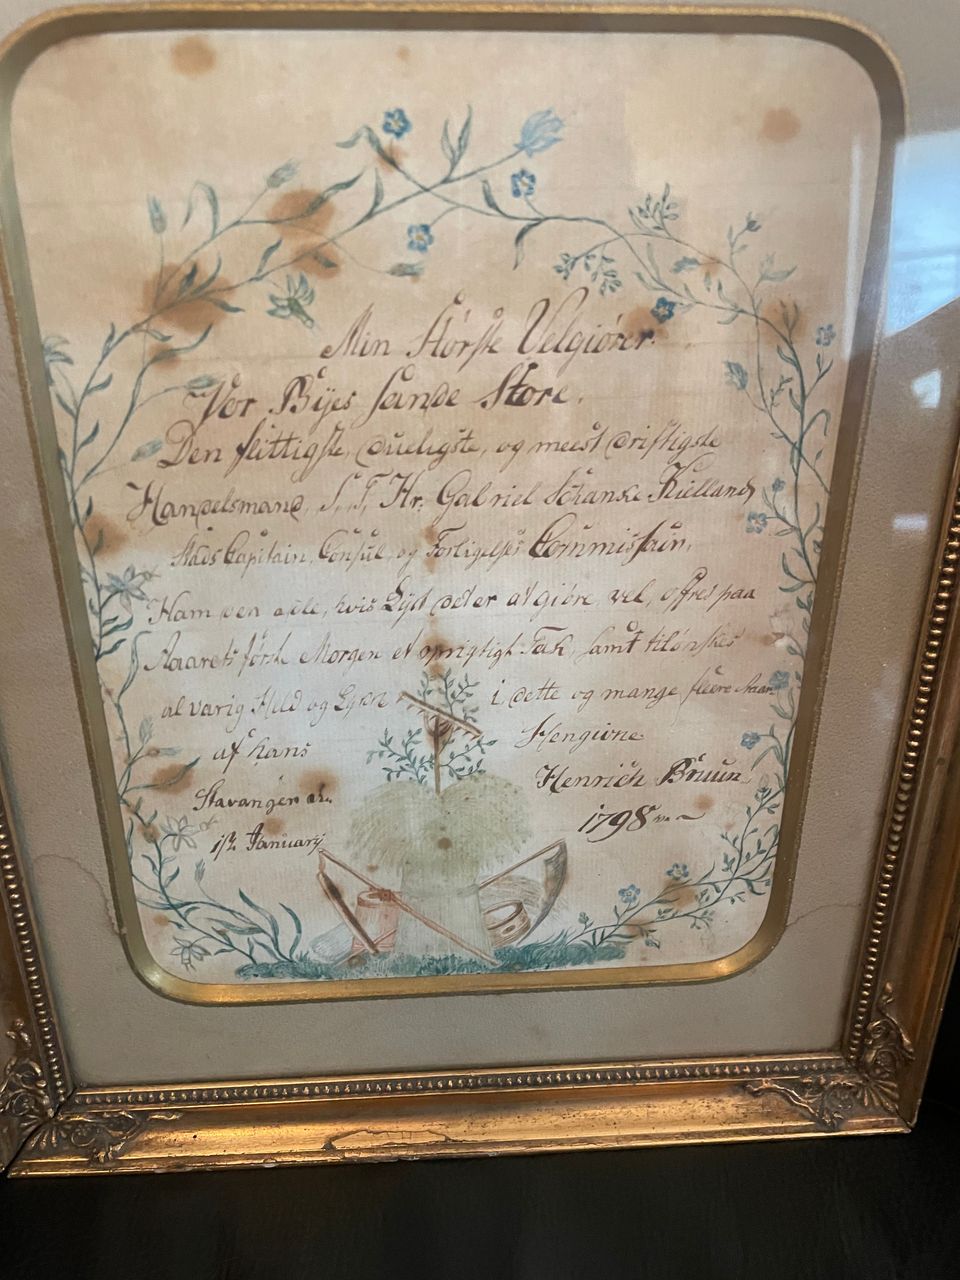 Min Störste Velgiörer
Vor Byes sande Store.
Den flittigste, dueligste, og meest driftigste
Handelsmand, S. T. Hr. Gabriel Schanke Kielland
Stads Capitain, Consul, og Forligelses Commissair,
Ham den ædle, hvis Lyst det er at giöre vel, offres paa
Aarets förste Morgen et oprigtigt Tak, samt tilönskes
alvarig Held og Lykke i dette og mange fleere Aar
af hans Hengivne
Stavanger Henrich Bruun
1ste Januarÿ 1798